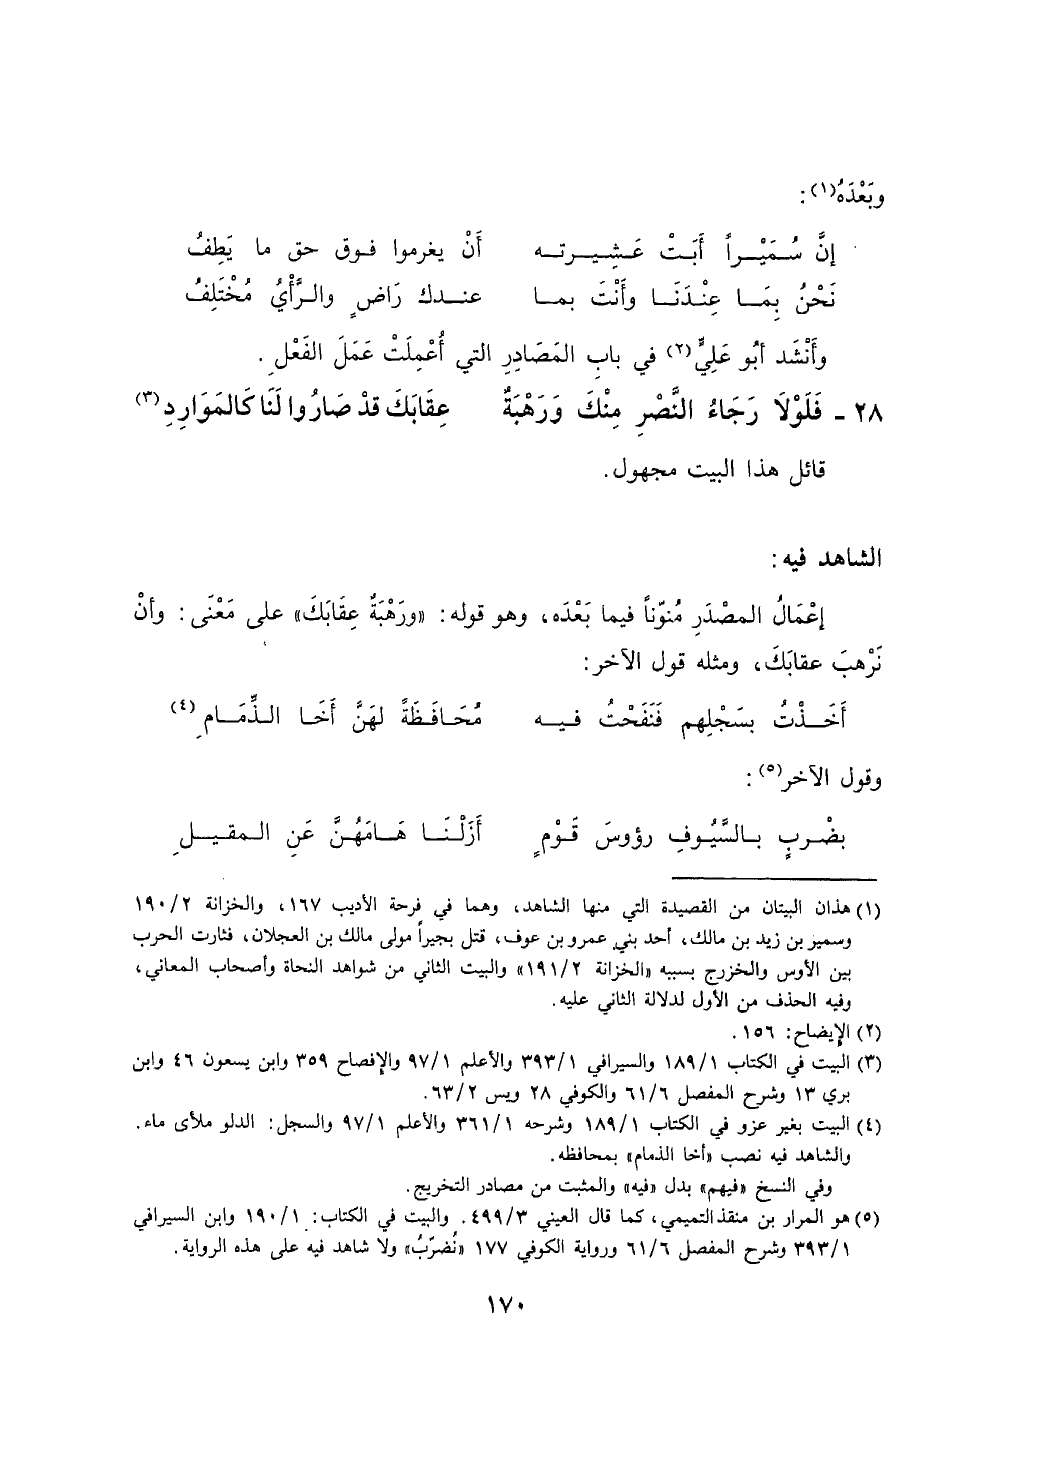 وبَعْدَهُ(١):
إنَّ سُمَيْراً أَبَتْ عَشِيرته أَنْ يغرموا فوق حق ما يَطِفُ
نَحْنُ بِمَا عِنْدَنَا وأَنْتَ بما عندك رَاضٍ والرَّأْيُ مُخْتَلِفُ
وأَنْشَد أبُو عَلِيٍّ(٢) في بابِ المَصَادِرِ التي أُعْمِلَتْ عَمَلَ الفَعْلِ.
٢٨ - فَلَوْلَا رَجَاءُ النَّصْرِ مِنْكَ وَرَهْبَةٌ عِقَابَكَ قدْ صَارُوا لَنَا كَالمَوَارِدِ(٣)
قائل هذا البيت مجهول.
الشاهد فيه:
إعْمَالُ المصْدَرِ مُنوّناً فيما بَعْدَه، وهو قوله: «ورَهْبَةٌ عِقَابَكَ» على مَعْنَى: وأنْ
نَرْهبَ عقابَكَ، ومثله قول الآخر:
أَخَذْتُ بسَجْلِهم فَنَفَحْتُ فيه مُحَافَظَةً لهَنَّ أَخَا الذِّمَامِ(٤)
وقول الآخر(٥):
بضْربٍ بالسَّيُوفِ رؤوسَ قَوْمٍ أَزَلْنَا هَامَهُنَّ عَنِ المقيلِ
(١) هذان البيتان من القصيدة التي منها الشاهد، وهما في فرحة الأديب ١٦٧، والخزانة ١٩٠/٢
وسمير بن زيد بن مالك، أحد بني عمرو بن عوف، قتل بجيراً مولى مالك بن العجلان، فثارت الحرب
بين الأوس والخزرج بسببه «الخزانة ١٩١/٢» والبيت الثاني من شواهد النحاة وأصحاب المعاني،
وفيه الحذف من الأول لدلالة الثاني عليه.
(٢) الإيضاح: ١٥٦.
(٣) البيت في الكتاب ١٨٩/١ والسيرافي ٣٩٣/١ والأعلم ٩٧/١ والإفصاح ٣٥٩ وابن يسعون ٤٦ وابن
بري ١٣ وشرح المفصل ٦١/٦ والكوفي ٢٨ ويس ٦٣/٢.
(٤) البيت بغير عزو في الكتاب ١٨٩/١ وشرحه ٣٦١/١ والأعلم ٩٧/١ والسجل: الدلو ملأى ماء.
والشاهد فيه نصب «أخا الذمام» بمحافظه.
وفي النسخ «فيهم» بدل «فيه» والمثبت من مصادر التخريج.
(٥) هو المرار بن منقذ التميمي، كما قال العيني ٤٩٩/٣. والبيت في الكتاب: ١٩٠/١ وابن السيرافي
٣٩٣/١ وشرح المفصل ٦١/٦ ورواية الكوفي ١٧٧ «نُضرّبُ» ولا شاهد فيه على هذه الرواية.
١٧٠